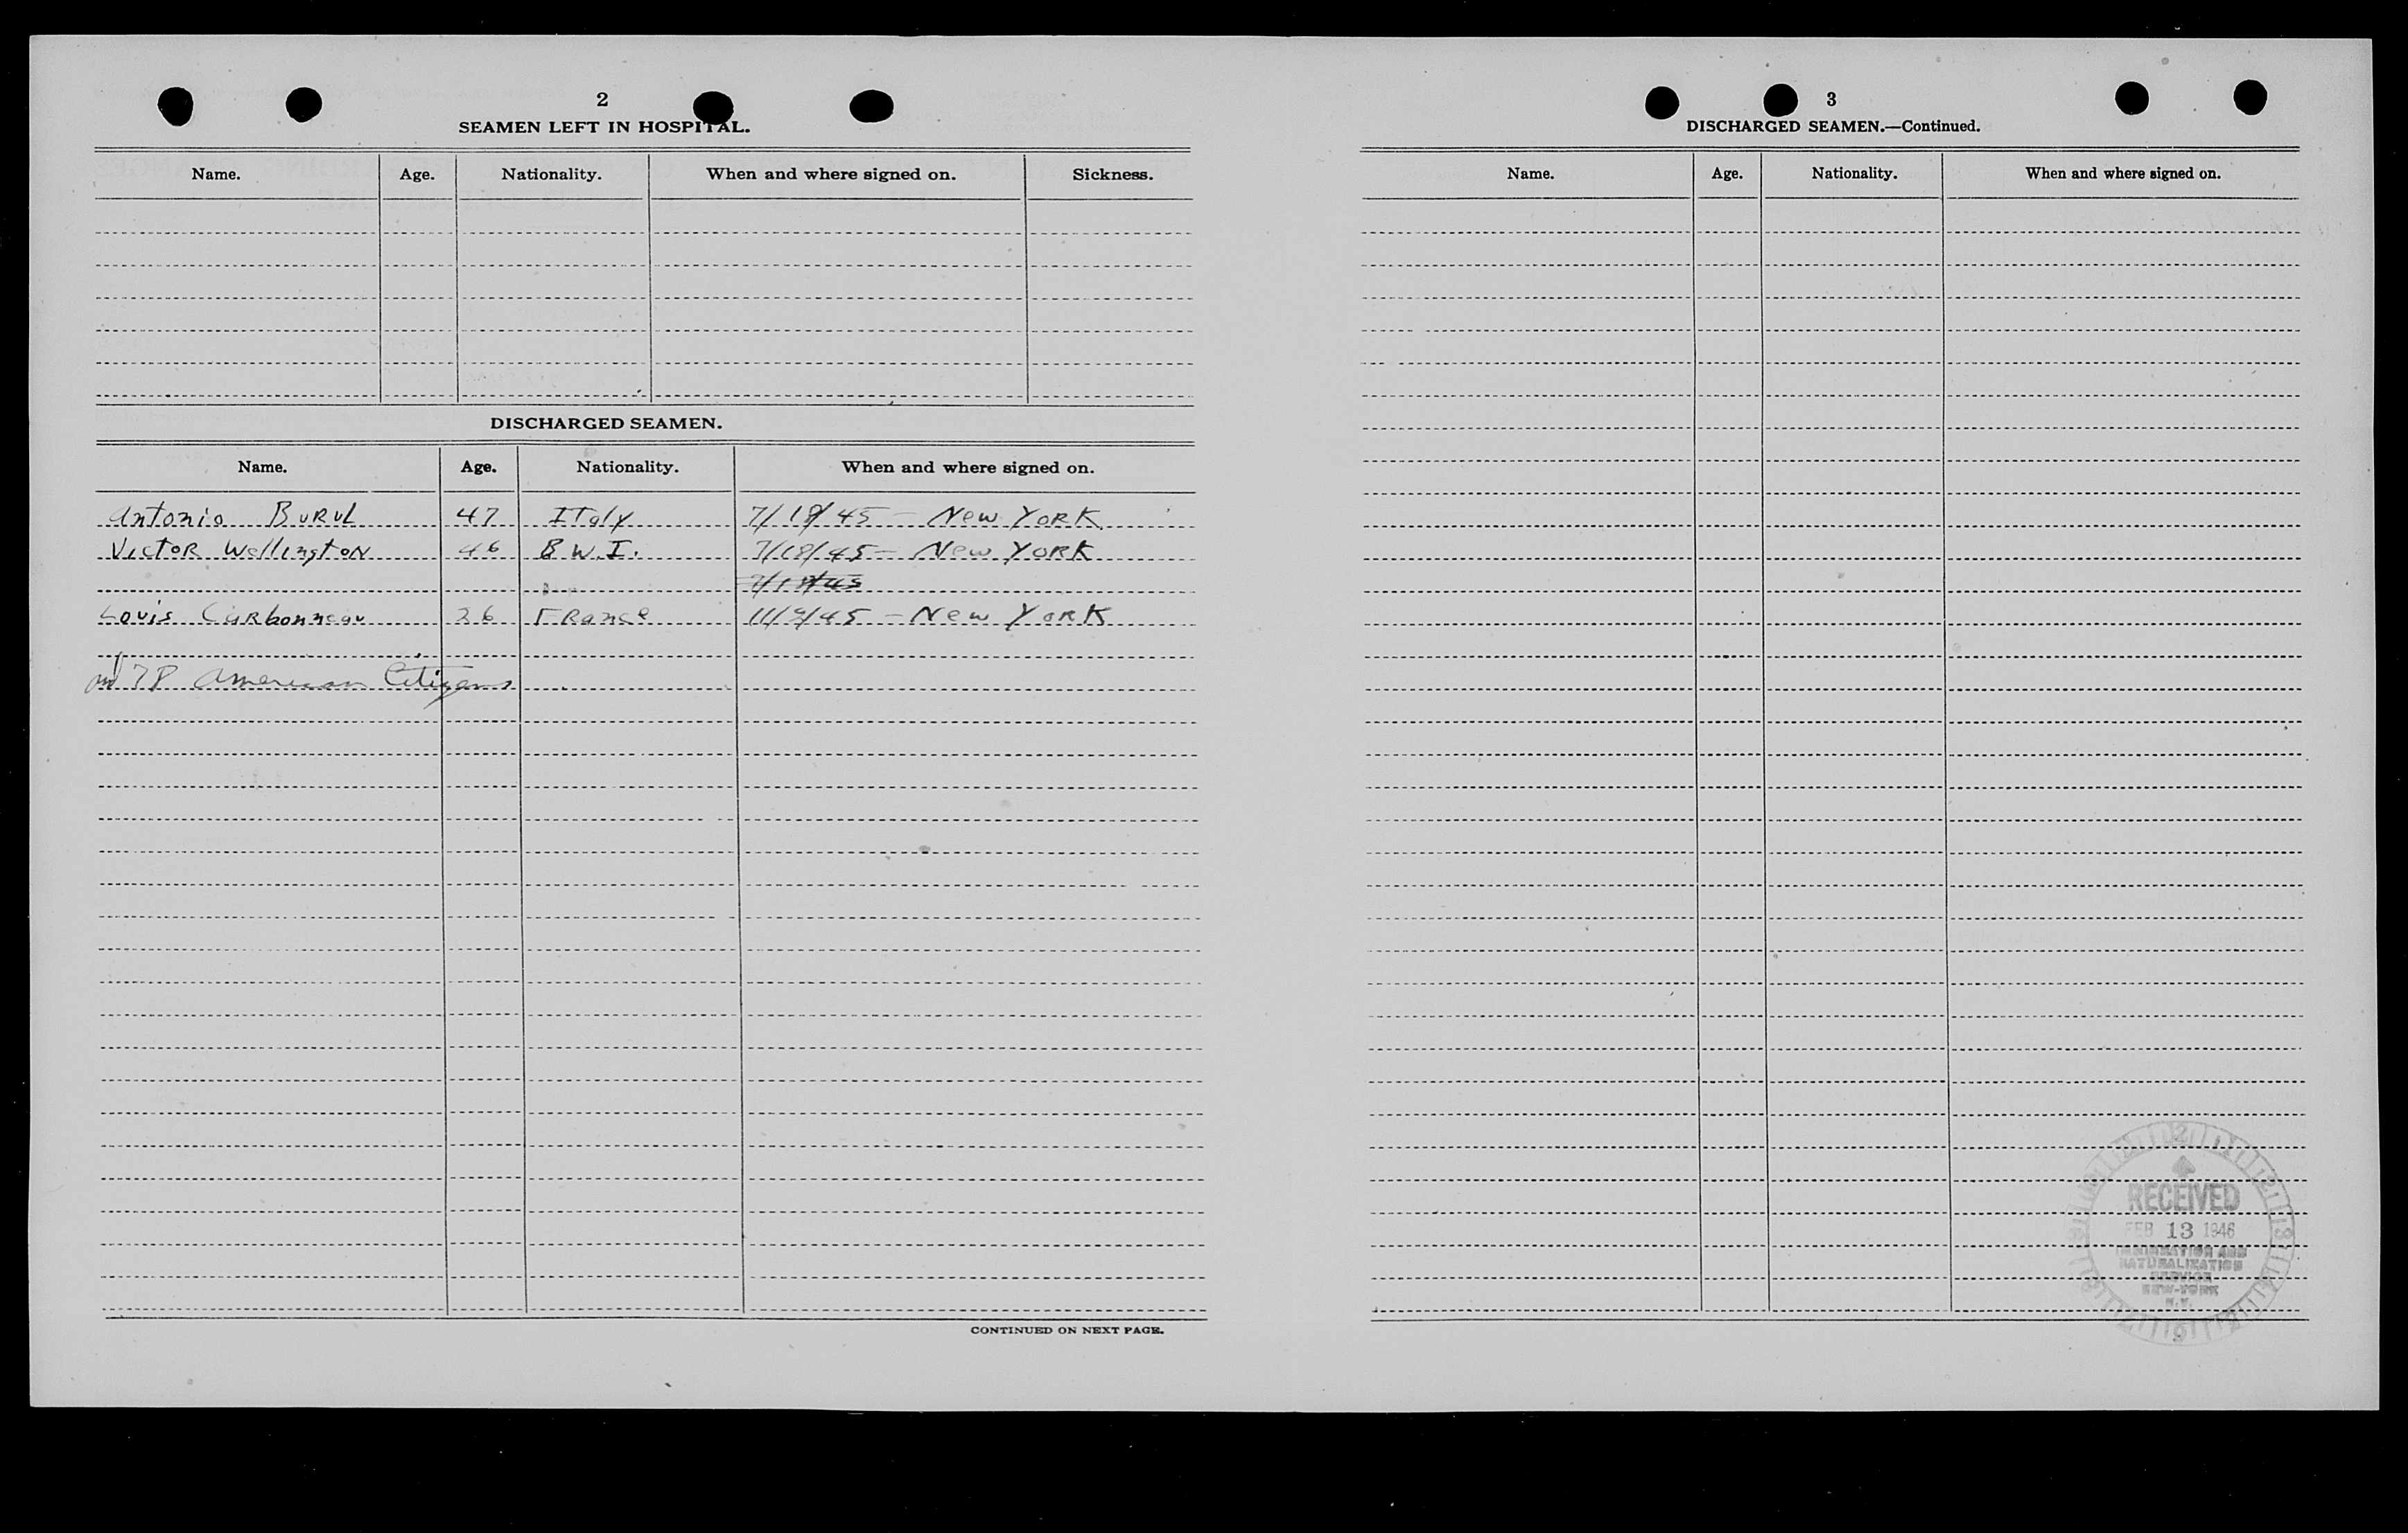 2
SEAMEN LEFT IN HOSPITAL.
Name. Age. Nationality. When and where signed on. Sickness.
DISCHARGED SEAMEN.
Name. Age. Nationality. When and where signed on.
Antonio BURUL 47 ITaly 7/18/45 - New YORK
VICTOR WellingtoN 46 B.W.I. 7/18/45 - New YORK
7/18/45
Louis Carbonneau 26 FRance 11/2/45 - New YORK
and 78 American Citizens
CONTINUED ON NEXT PAGE.
3
DISCHARGED SEAMEN.—Continued.
Name. Age. Nationality. When and where signed on.
RECEIVED
FEB 13 1946
IMMIGRATION AND
NATURALIZATION
SERVICE
NEW-YORK
N.Y.